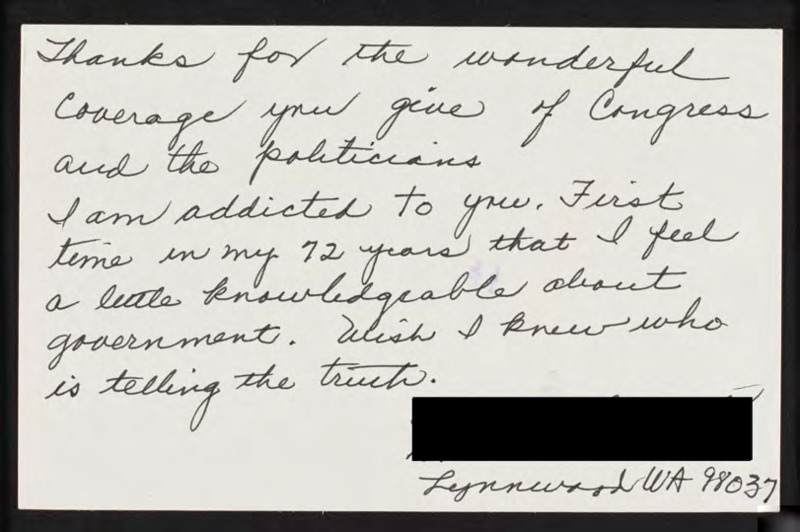 Thanks for the wonderful
coverage you give of Congress
and the politicians
I am addicted to you. First
time in my 72 years that I feel
a little knowledgeable about
government. Wish I knew who
is telling the truth.
Lynnwood WA 98037